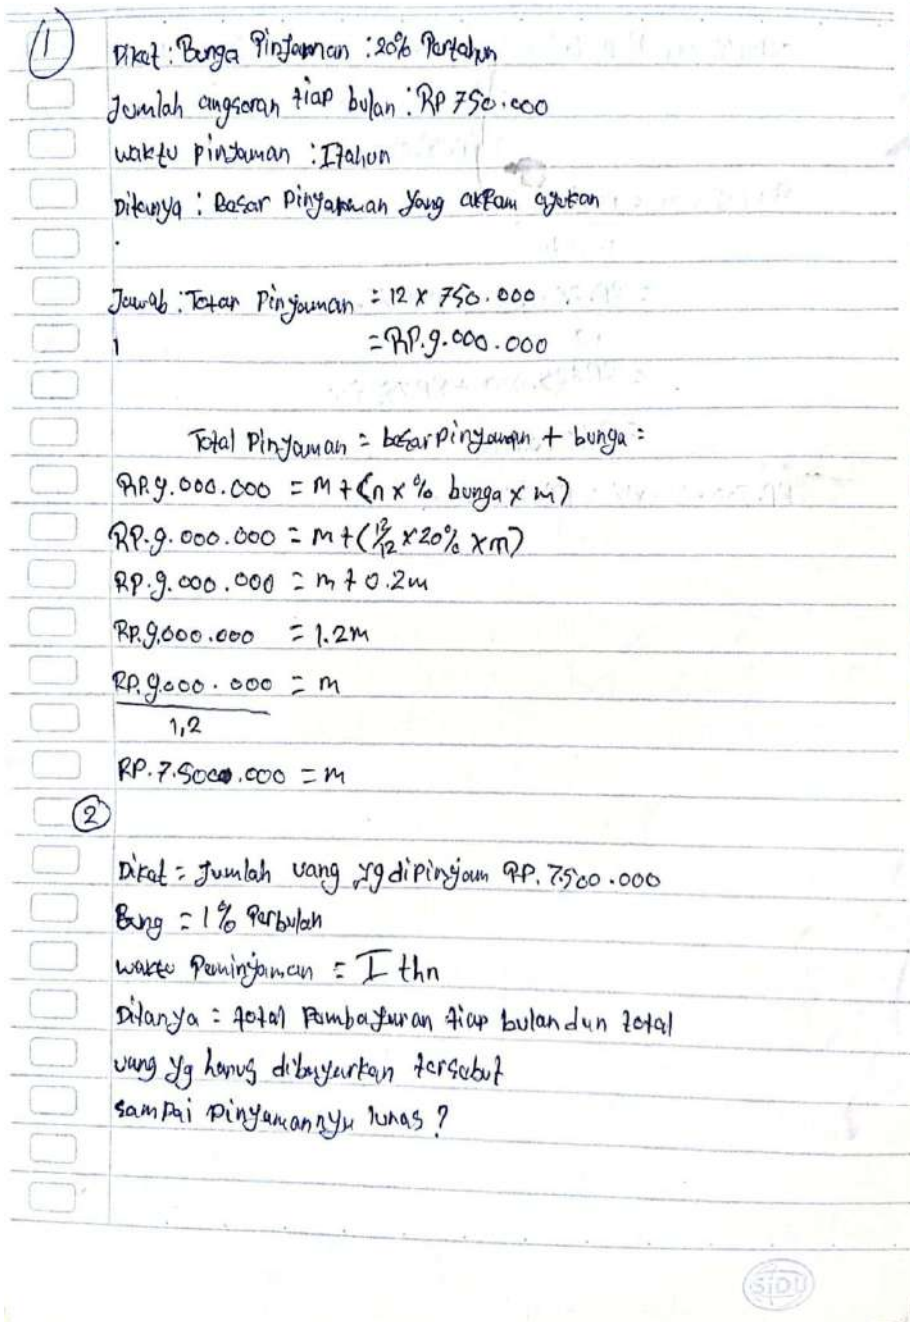 1
Diket : Bunga Pinjaman : 20% Pertahun
Jumlah angsuran tiap bulan : RP 750.000
waktu pinjaman : I tahun
Ditanya : Besar Pinyaman yang akkam ajukan
Jawab : Totar Pinyauman = 12 x 750.000
= RP.9.000.000
Total Pinyauman = besar pinyauman + bunga =
RP.9.000.000 = m + (n x % bunga x m)
RP.9.000.000 = m + (12/12 x 20% x m)
RP.9.000.000 = m + 0.2m
RP.9.000.000 = 1.2m
RP.9.000.000 = m
1,2
RP.7.500.000 = m
2
Diket = Jumlah uang yg dipinjam RP. 7.500.000
Bung = 1% Perbulan
waktu Peminjaman = I thn
Ditanya = total Pembayaran tiap bulan dan total
uang yg harus dibayarkan tersebut
sampai pinyamannya lunas ?
SiDU